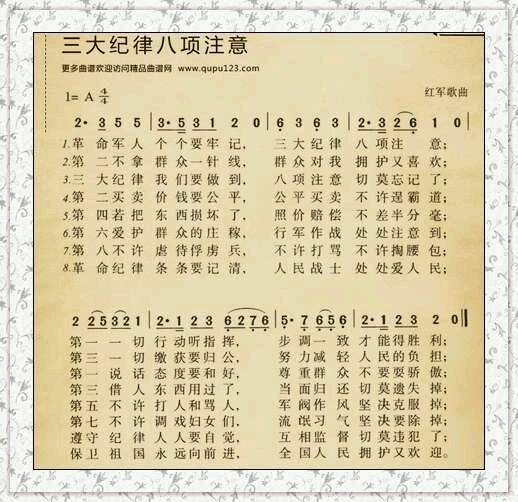 三大纪律八项注意
更多曲谱欢迎访问精品曲谱网 www.qupu123.com
1= A 4/4
红军歌曲
2· 3 5 5 | 3· 5 3 1 2 0 | 6 3 6 3 | 2· 3 2 6 1 0 |
1.革 命军人 个个要牢记, 三大纪律 八项注 意;
2.第 二不拿 群众一针线, 群众对我 拥护又喜欢;
3.三 大纪律 我们要做到, 八项注意 切莫忘记了;
4.第 二买卖 价钱要公平, 公平买卖 不许逞霸道;
5.第 四若把 东西损坏了, 照价赔偿 不差半分毫;
6.第 六爱护 群众的庄稼, 行军作战 处处注意到;
7.第 八不许 虐待俘虏兵, 不许打骂 不许掏腰包;
8.革 命纪律 条条要记清, 人民战士 处处爱人民;
2 2 5 3 2 1 | 2· 1 2 3 6 6 2 7 6 | 5· 7 6 5 6 | 2· 1 2 3 2 0 ‖
第一一切 行动听指挥, 步调一致 才能得胜利;
第三一切 缴获要归公, 努力减轻 人民的负担;
第一说话 态度要和好, 尊重群众 不要耍骄傲;
第三借人 东西用过了, 当面归还 切莫遗失掉;
第五不许 打人和骂人, 军阀作风 坚决克服掉;
第七不许 调戏妇女们, 流氓习气 坚决要除掉;
遵守纪律 人人要自觉, 互相监督 切莫违犯了;
保卫祖国 永远向前进, 全国人民 拥护又欢迎。